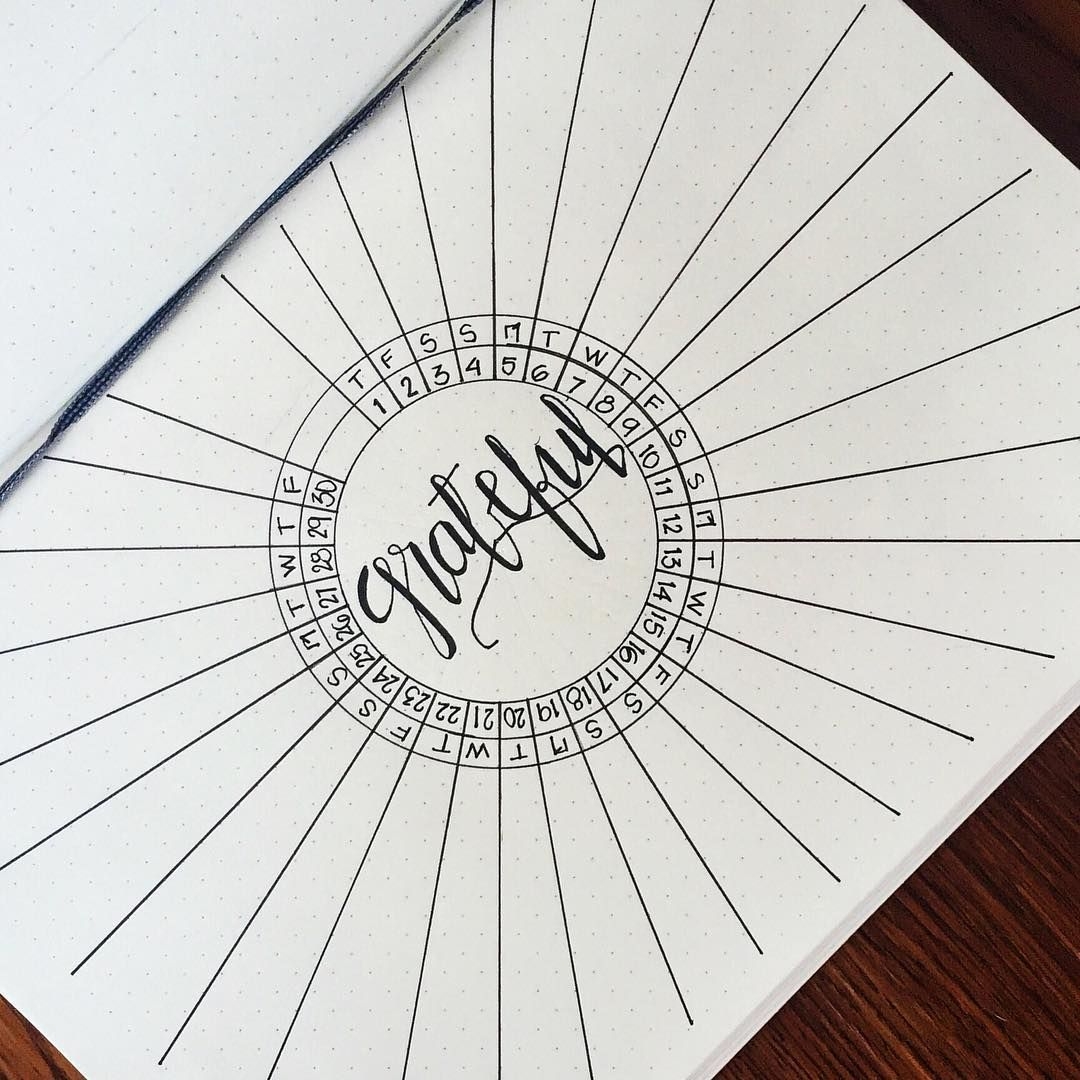 T F S S M T W T F S S M T W T F S S M T W T F S S M T W T F
1 2 3 4 5 6 7 8 9 10 11 12 13 14 15 16 17 18 19 20 21 22 23 24 25 26 27 28 29 30
grateful